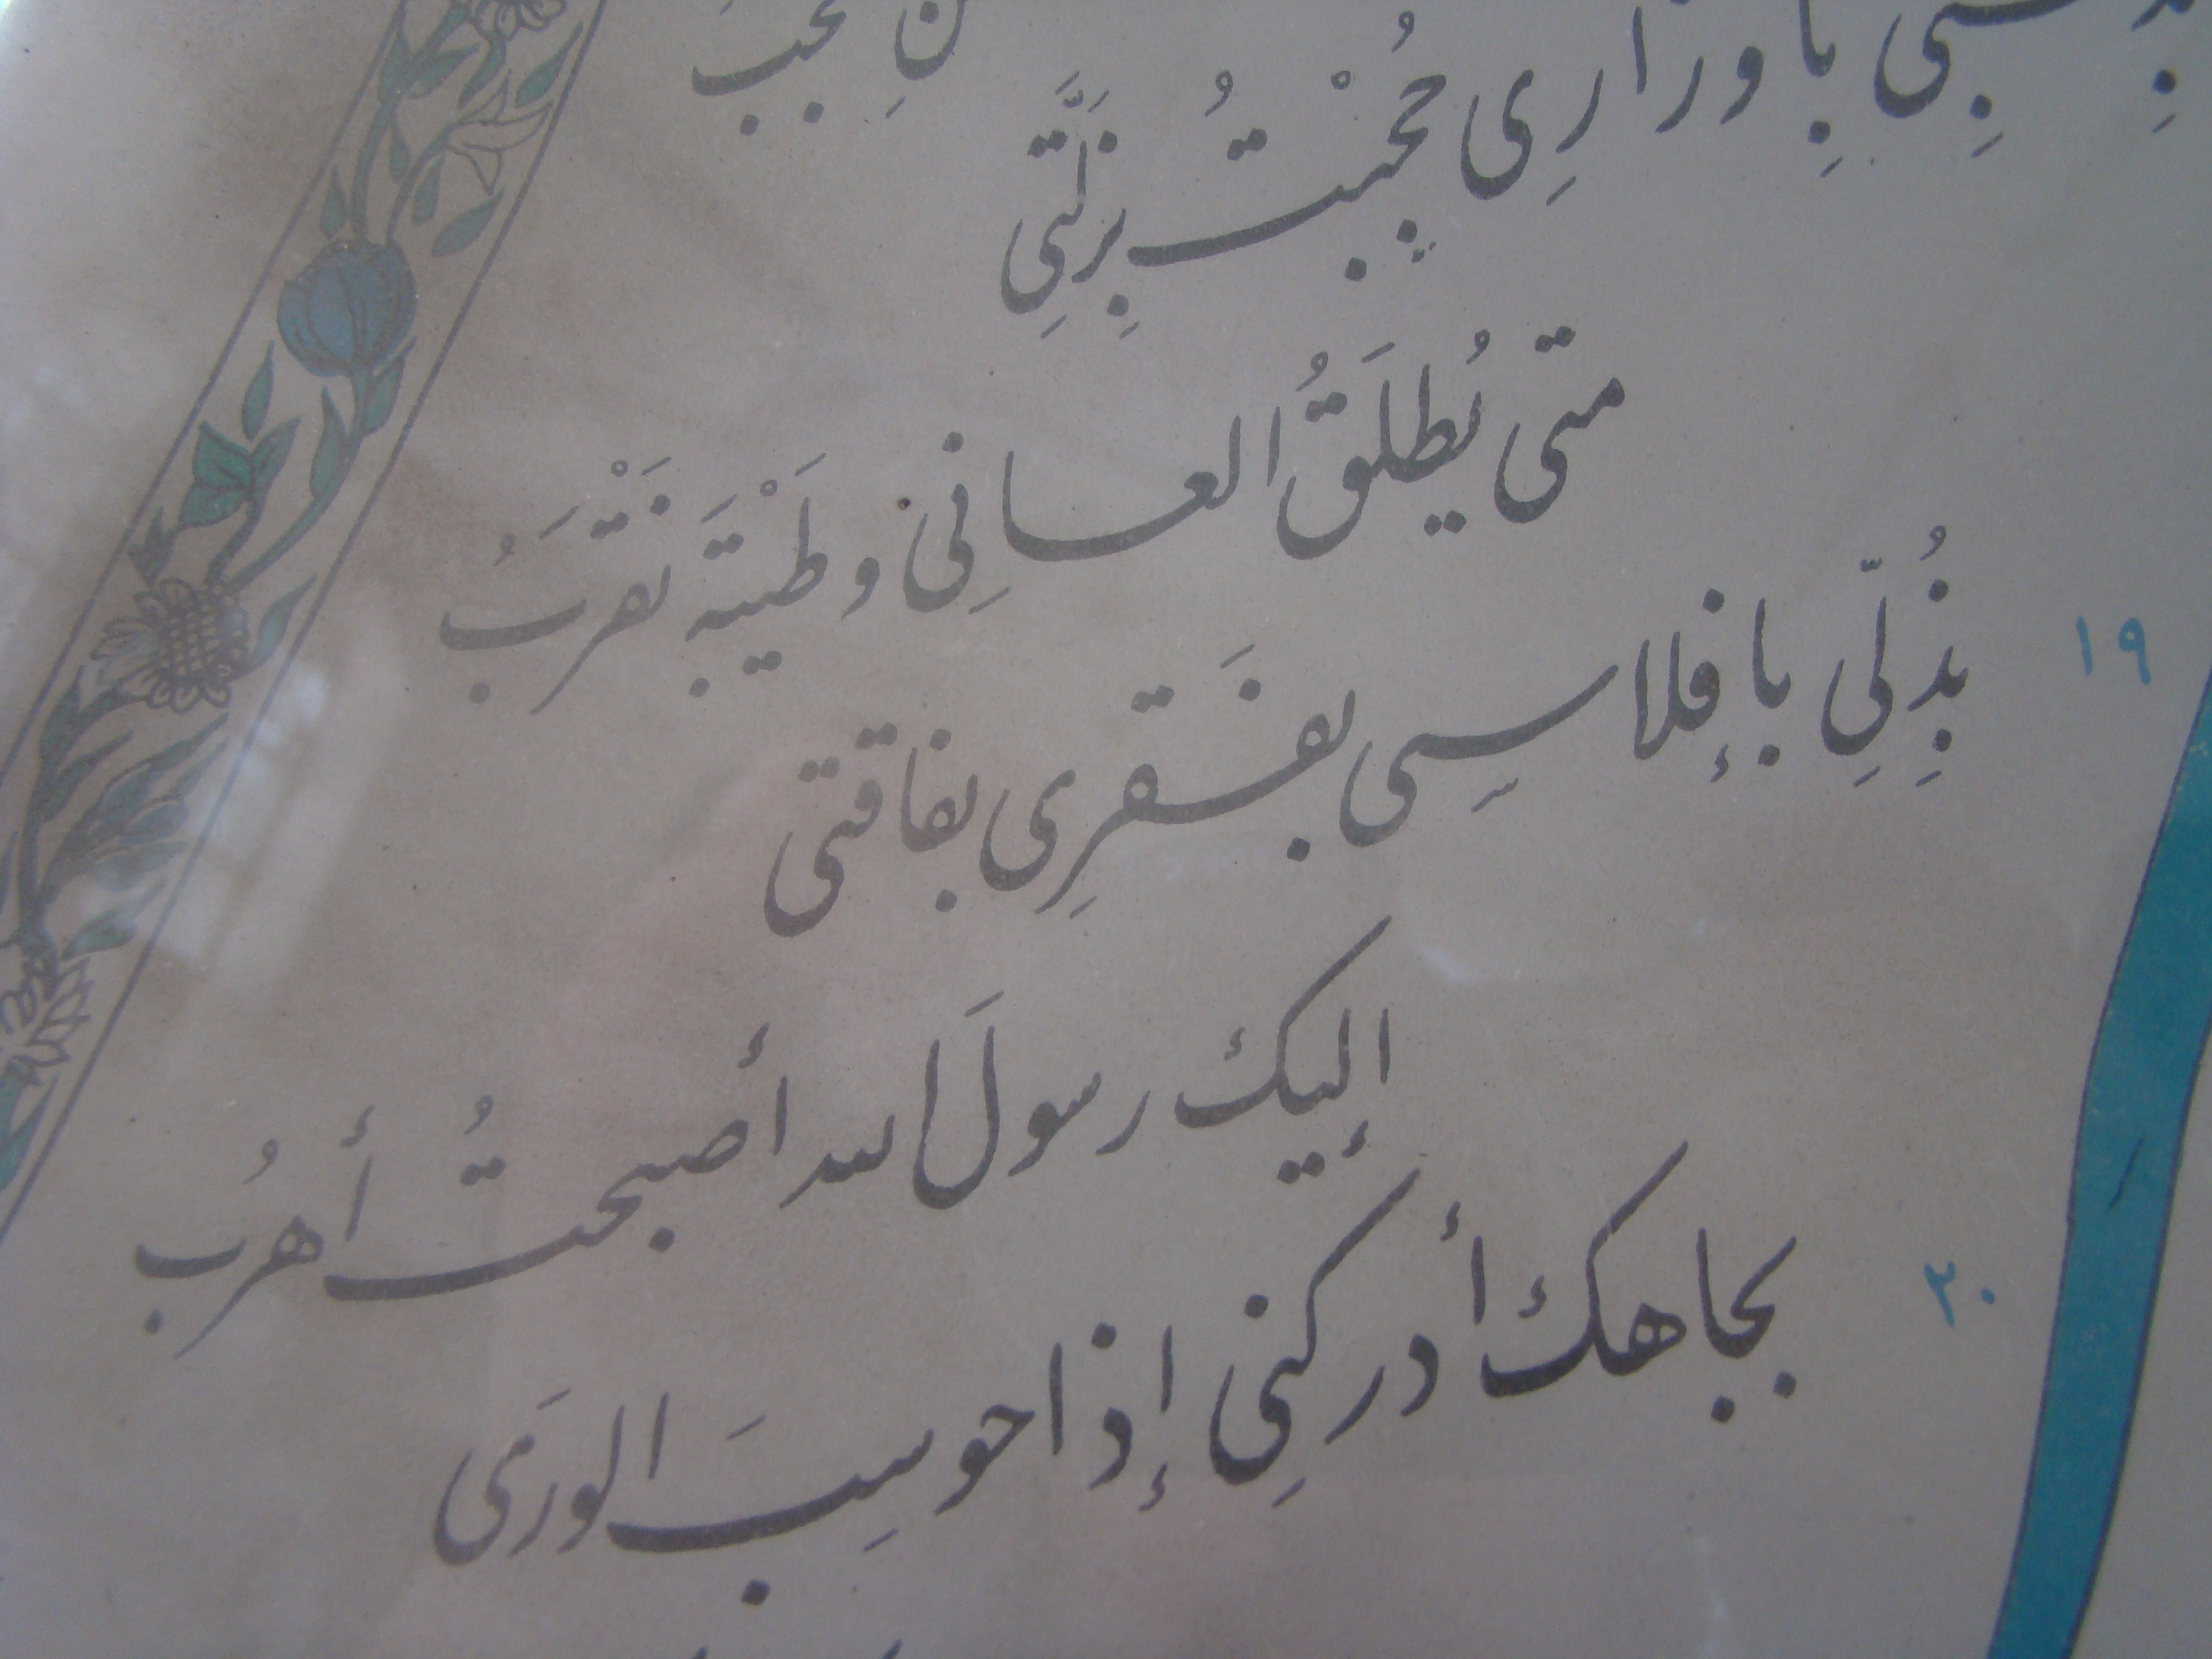 بِأوزارِي حُجِبْتُ بِزَلَّتِي
متى يُطلَقُ العانِي وطَيْبَةَ تَقْرَبُ
١٩ بِذُلِّي بإفلاسِي بفَقرِي بفاقتي
إليك رسولَ الله أصبحتُ أهربُ
٢٠ بجاهك أدركنِي إذا حوسِبَ الورَى